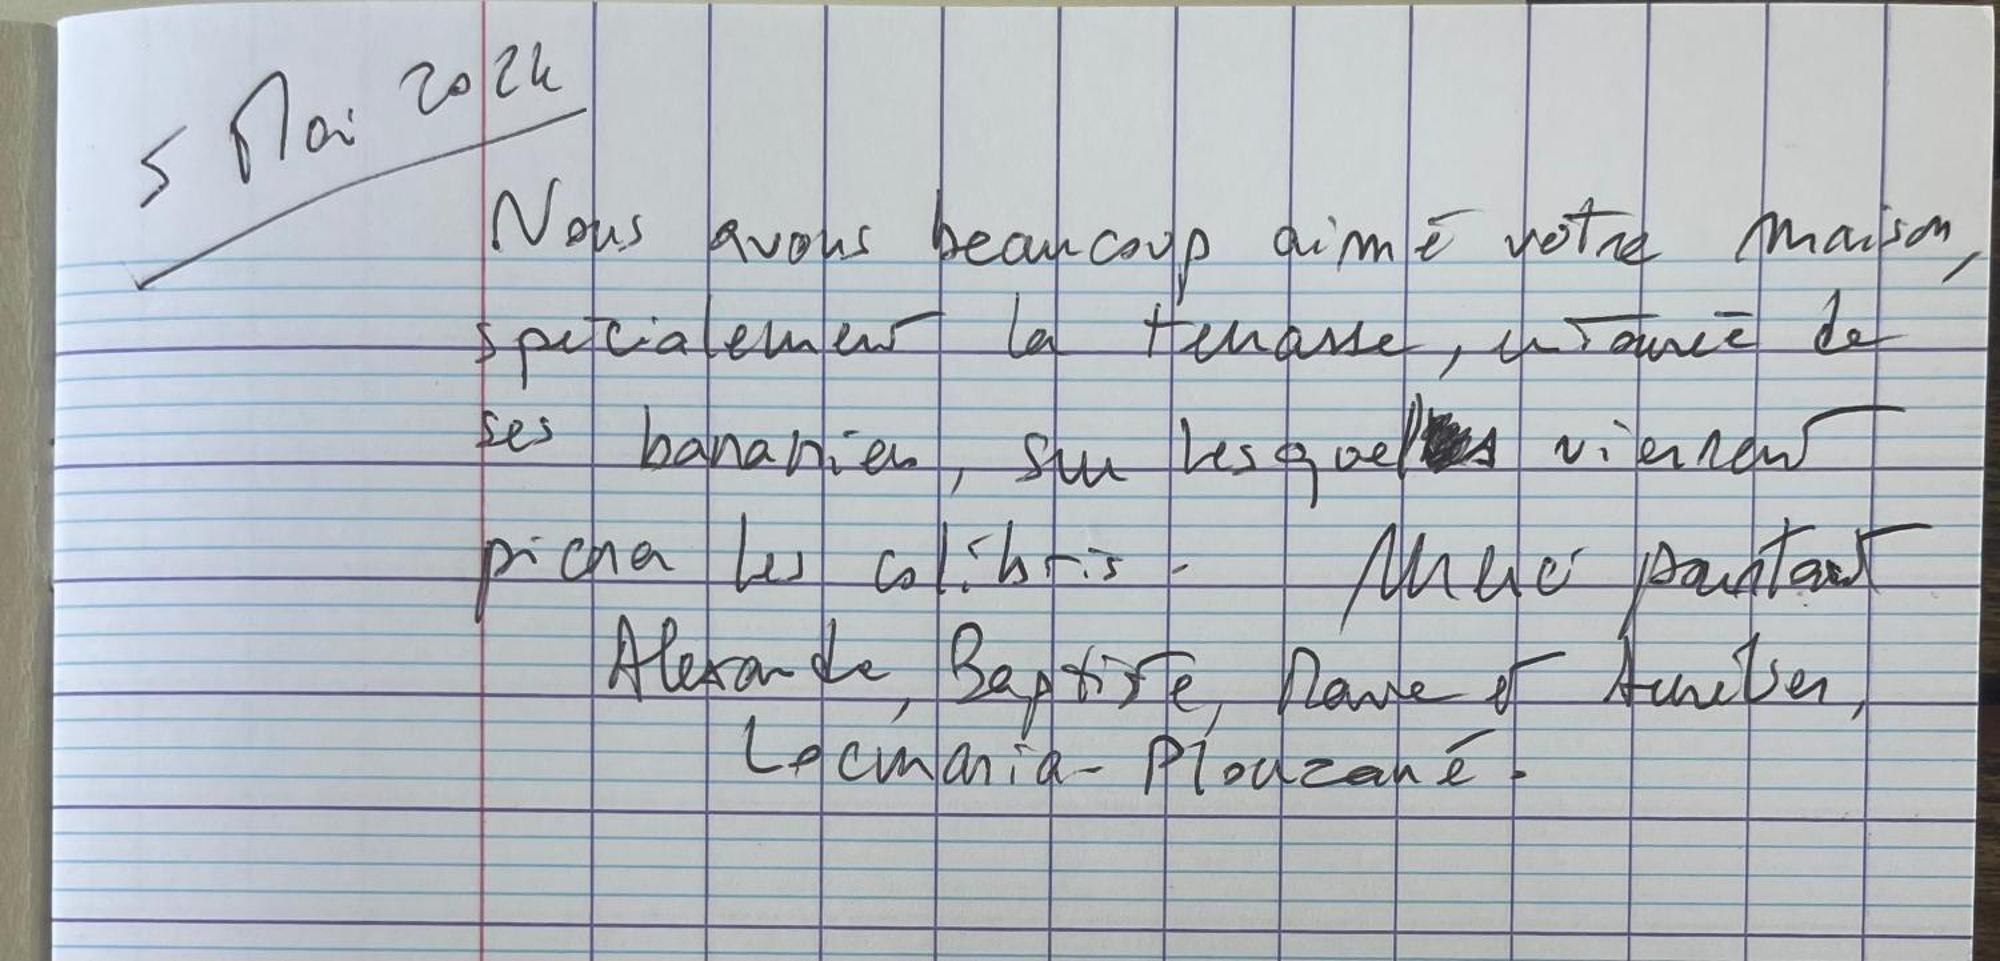 5 Mai 2024
Nous avons beaucoup aimé votre maison,
spécialement la terrasse, entourée de
ses bananiers, sur lesquels viennent
picorer les colibris. Merci pour tout
Alexandre, Baptiste, Marie et Aurélien,
Locmaria-Plouzané.